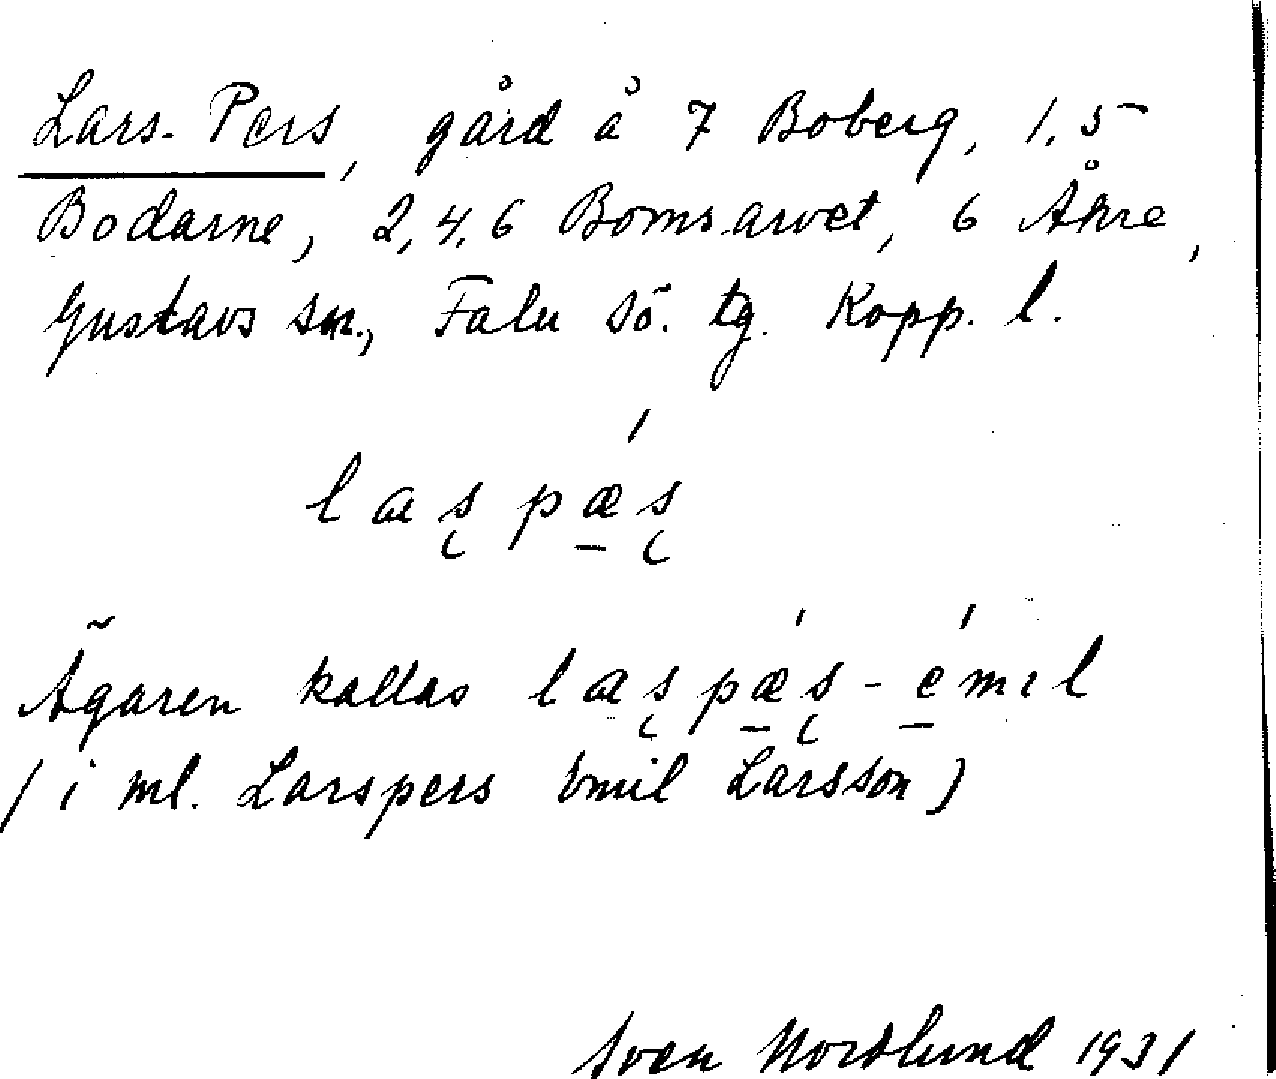 Lars-Pers, gård å 7 Boberg, 1,5
Bodarne, 2,4,6 Bomsarvet, 6 Åhre,
Gustavs sn., Falu sö. tg. Kopp. l.
laʂ pǽ̱ʂ
Ägaren kallas laʂpǽ̱ʂ-é̱mɩl
(i ml. Larspers Emil Larsson)
Sven Nordlund 1931